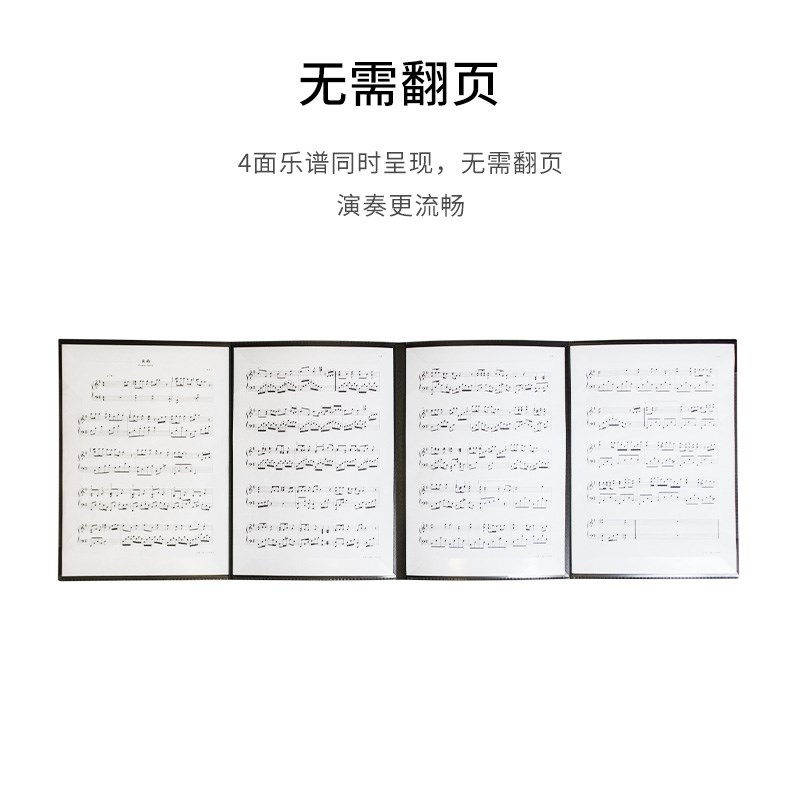 无需翻页
4面乐谱同时呈现，无需翻页
演奏更流畅